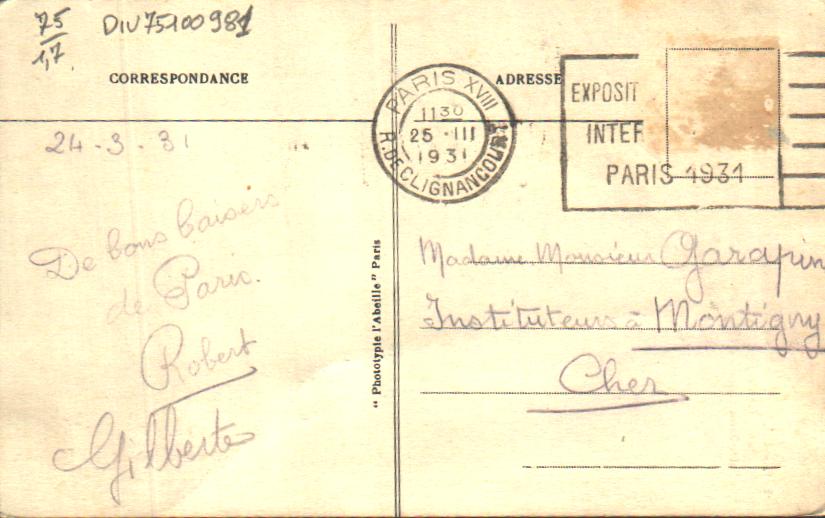 75
1,7
DIV75100981
CORRESPONDANCE
ADRESSE
PARIS XVIII
1130
25 · III
1931
R. DE CLIGNANCOURT
EXPOSIT
INTER
PARIS 1931
24-3-31
De bons baisers
de Paris.
Robert
Gilberte
" Phototypie l'Abeille " Paris
Madame. Monsieur Garapin
Instituteurs à Montigny
Cher